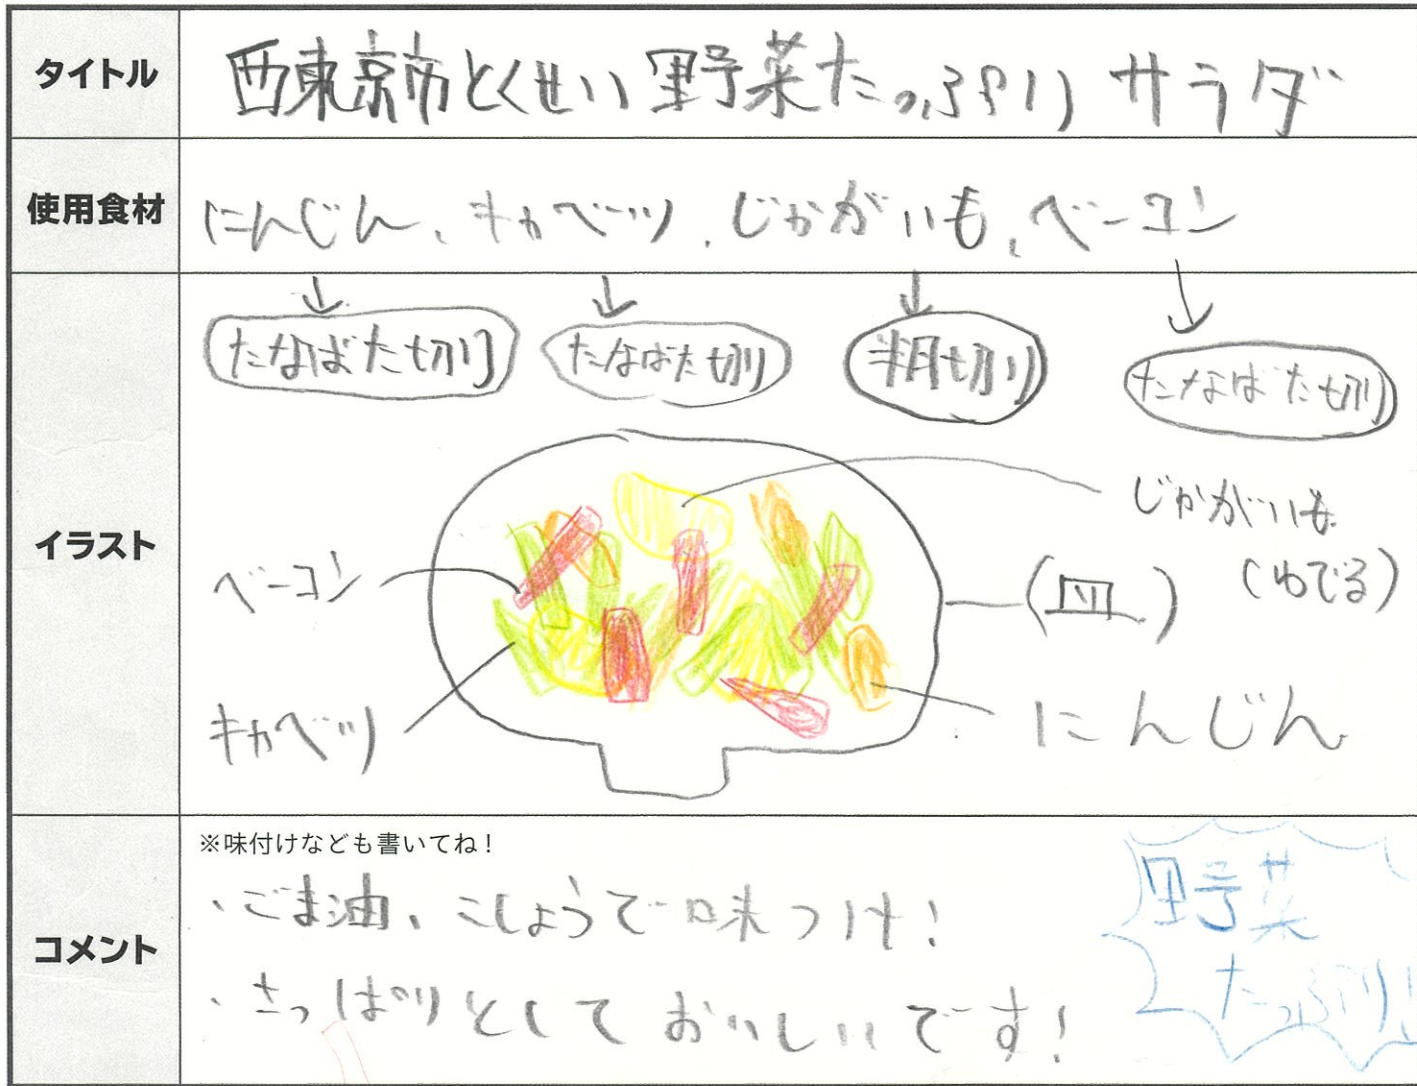 タイトル
西東京市とくせい野菜たっぷりサラダ
使用食材
にんじん、キャベツ、じゃがいも、ベーコン
↓ ↓ ↓ ↓
たなばた切り たなばた切り 半月切り たなばた切り
イラスト
じゃがいも
(ゆでる)
ベーコン
(皿)
キャベツ
にんじん
コメント
※味付けなども書いてね!
・ごま油、こしょうで味つけ!
・さっぱりとしておいしいです!
野菜
たっぷり!